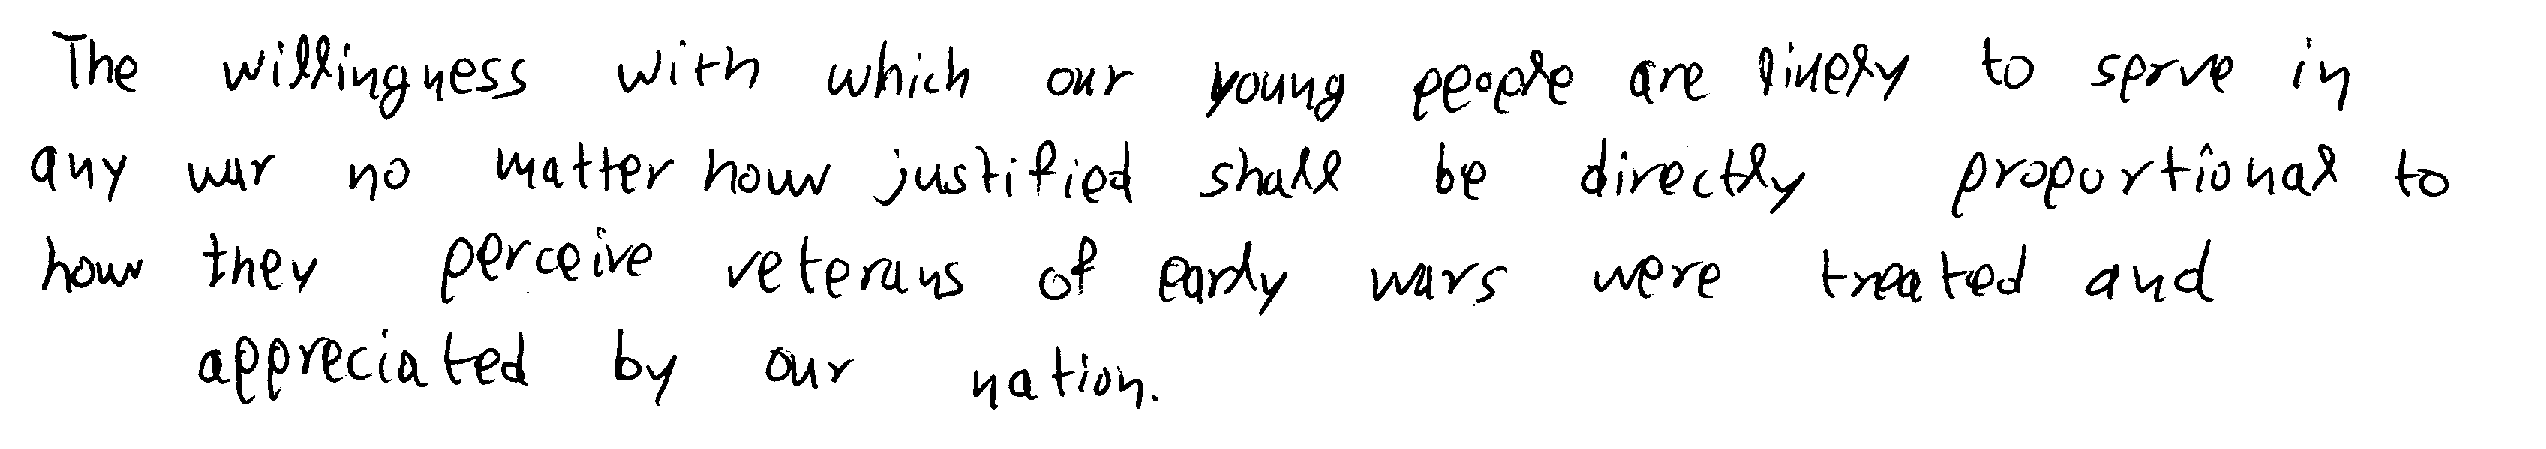 The willingness with which our young people are likely to serve in
any war no matter how justified shall be directly proportional to
how they perceive veterans of early wars were treated and
appreciated by our nation.